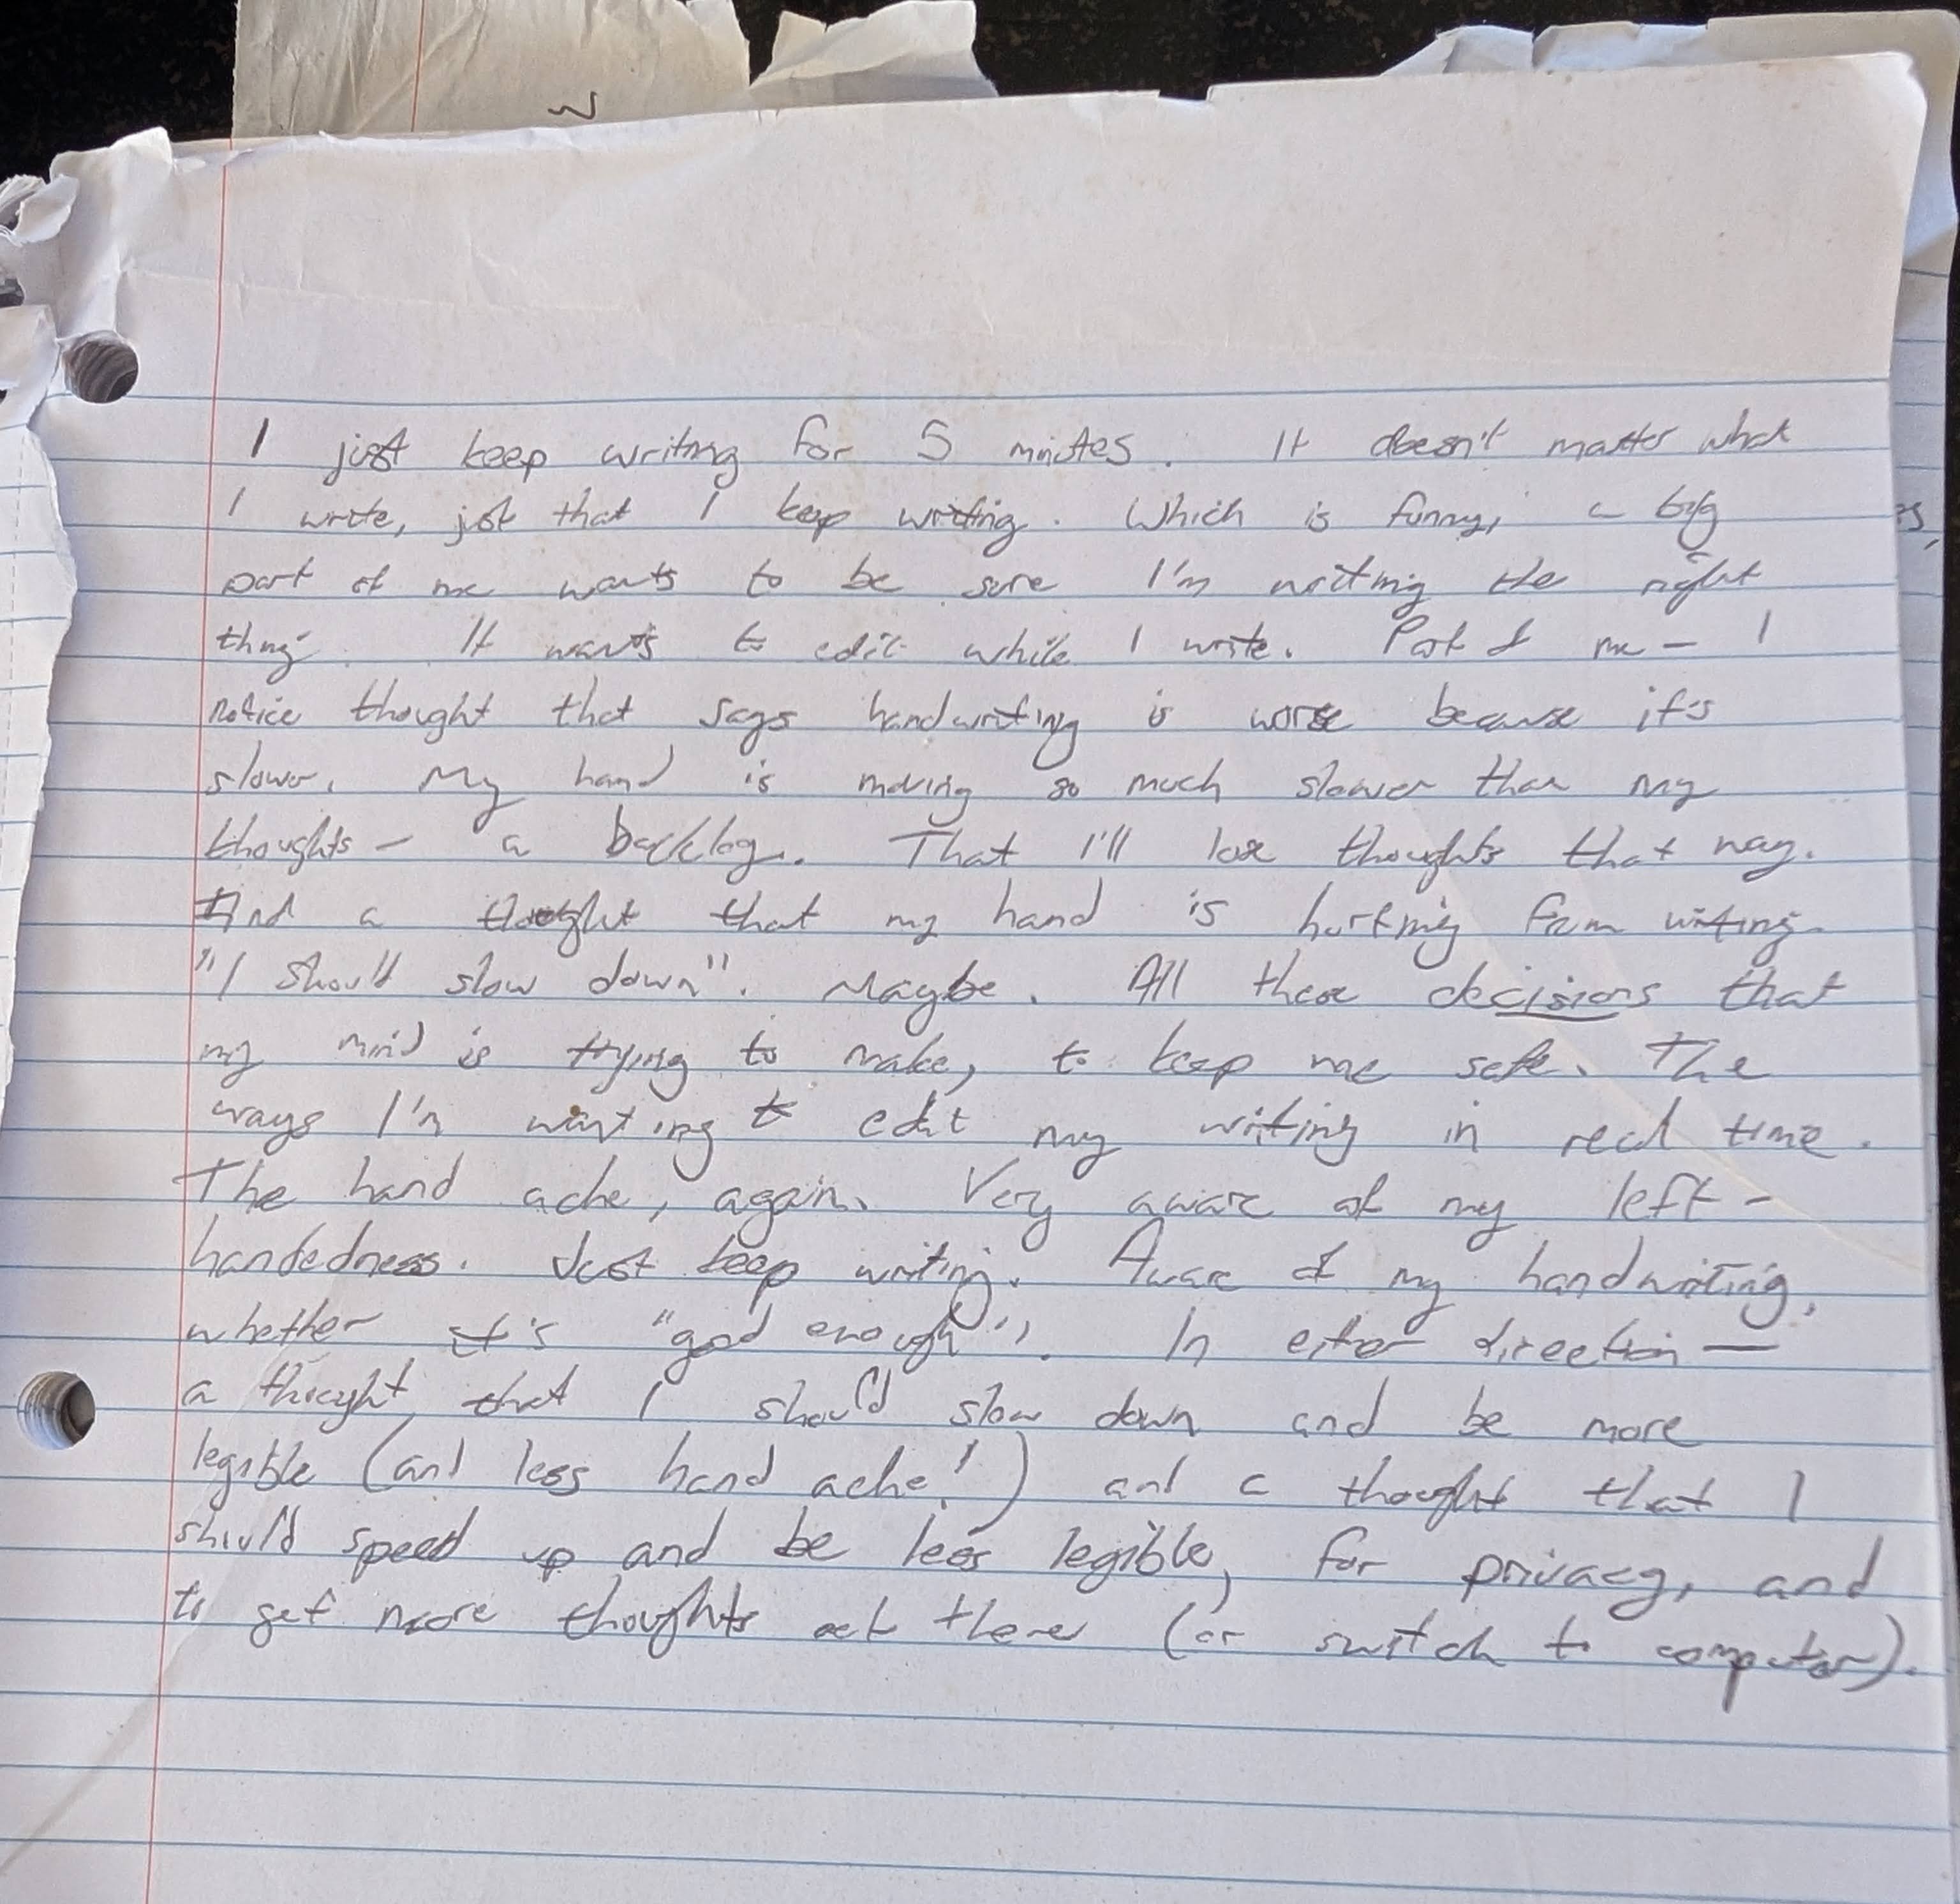 I just keep writing for 5 minutes. It doesn't matter what
I write, just that I keep writing. Which is funny, a big
part of me wants to be sure I'm writing the right
thing. It wants to edit while I write. Part of me - I
notice thought that says handwriting is worse because it's
slower. My hand is moving so much slower than my
thoughts - a backlog. That I'll lose thoughts that way.
And a thought that my hand is hurting from writing.
"I should slow down". Maybe. All these decisions that
my mind is trying to make, to keep me safe. The
ways I'm wanting to edit my writing in real time.
The hand ache, again. Very aware of my left-
handedness. Just keep writing. Aware of my handwriting,
whether it's "good enough". In either direction —
a thought that I should slow down and be more
legible (and less hand ache!) and a thought that I
should speed up and be less legible, for privacy, and
to get more thoughts out there (or switch to computer).